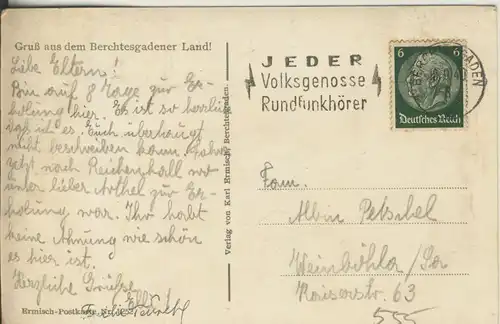 Gruß aus dem Berchtesgadener Land!
Liebe Eltern!
Bin auf 8 Tage zur Er-
holung hier. Es ist so herrlich
daß ich es Euch überhaupt
nicht beschreiben kann. Fahre
jetzt nach Reichenhall wo
unser lieber zur Er-
holung war. Ihr habt
keine Ahnung wie schön
es hier ist.
Herzliche Grüße
Ermisch-Postkarte Nr.
Verlag von Karl Ermisch, Berchtesgaden.
JEDER
Volksgenosse
Rundfunkhörer
BERCHTESGADEN
6 6
Deutsches Reich
Fam.
Albin Petschel
Weinböhla/Sa
Kaiserstr. 63
555